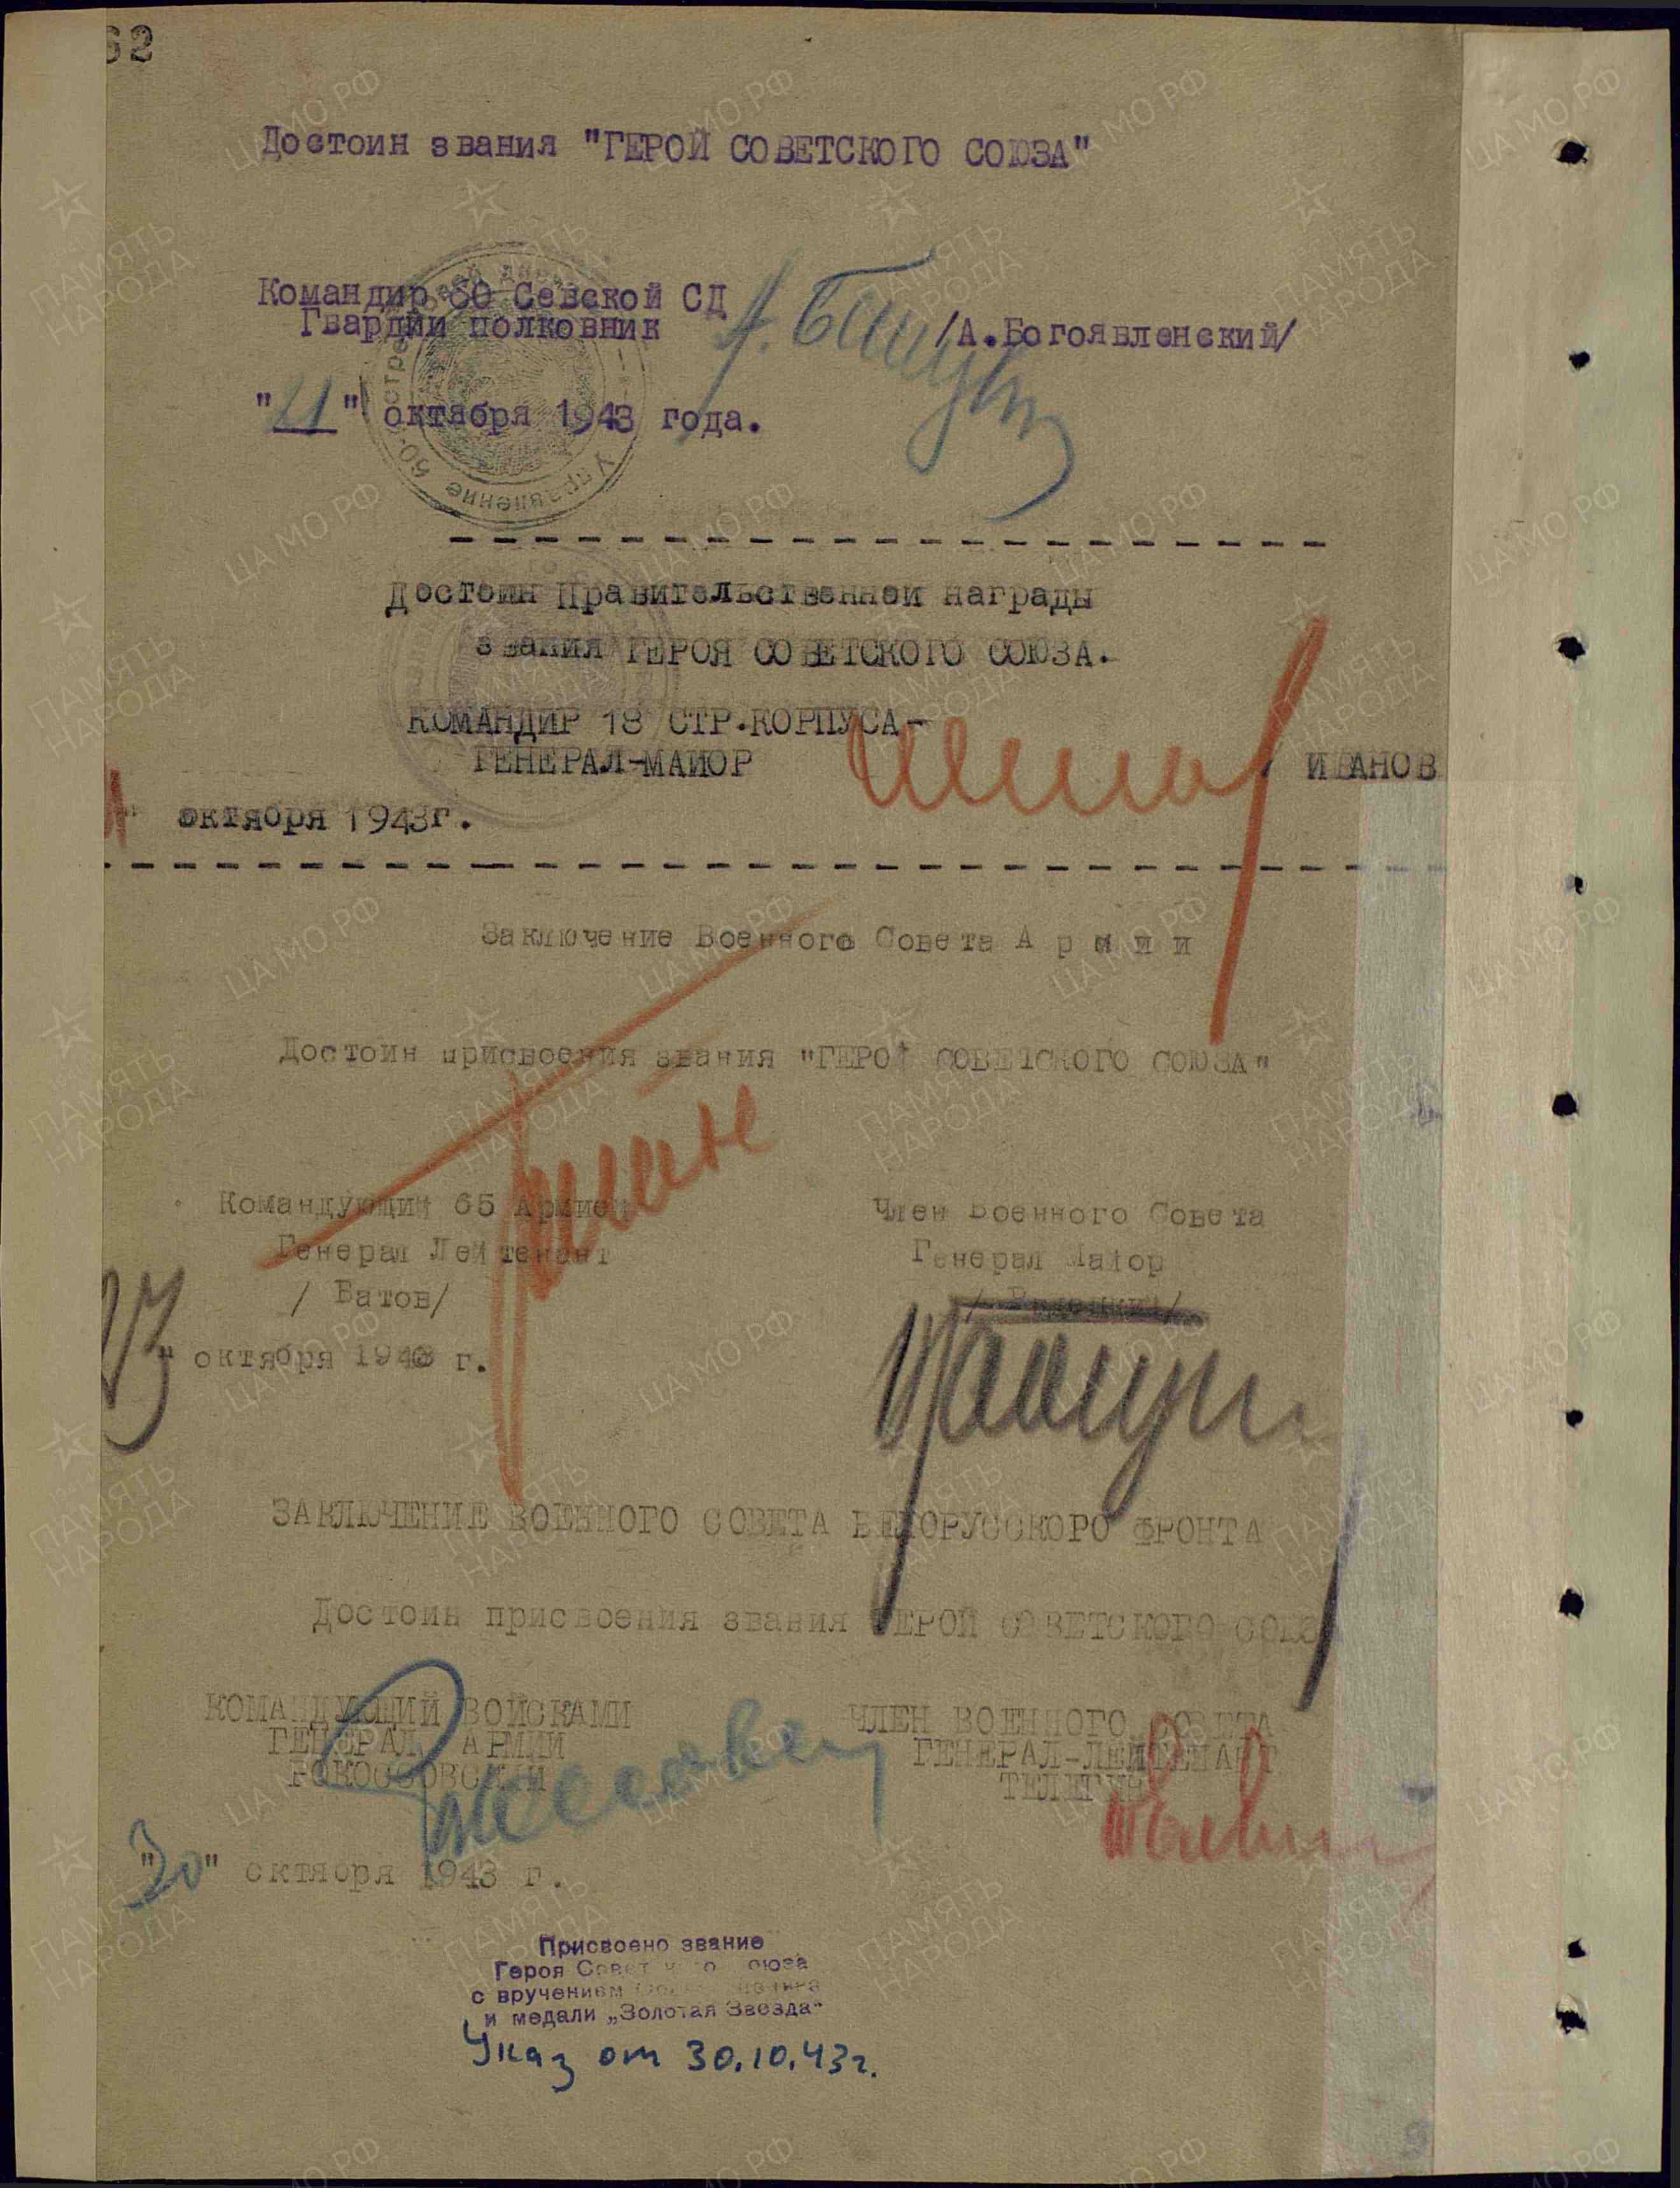 62
Достоин звания "ГЕРОЙ СОВЕТСКОГО СОЮЗА"
Командир 60 Севской СД
Гвардии полковник
/А.Богоявленский/
" " октября 1943 года.
Управление
Достоин Правительственной награды
звания ГЕРОЯ СОВЕТСКОГО СОЮЗА.
КОМАНДИР 18 СТР.КОРПУСА-
ГЕНЕРАЛ-МАЙОР ИВАНОВ
октября 1943г.
Заключение Военного Совета Армии
Достоин присвоения звания "ГЕРОЙ СОВЕТСКОГО СОЮЗА"
Командующий 65 Армией
Генерал Лейтенант
/ Батов/
Член Военного Совета
Генерал Майор
23" октября 1943 г.
ЗАКЛЮЧЕНИЕ ВОЕННОГО СОВЕТА БЕЛОРУССКОГО ФРОНТА
Достоин присвоения звания ГЕРОЙ СОВЕТСКОГО СОЮЗ
КОМАНДУЮЩИЙ ВОЙСКАМИ
ГЕНЕРАЛ АРМИИ
РОКОССОВСКИЙ
ЧЛЕН ВОЕННОГО СОВЕТА
ГЕНЕРАЛ-ЛЕЙТЕНАНТ
ТЕЛЕГИН
"30" октября 1943 г.
Присвоено звание
Героя Советского Союза
с вручением
и медали „Золотая Звезда"
Указ от 30.10.43г.
ЦА МО РФ
ПАМЯТЬ
НАРОДА